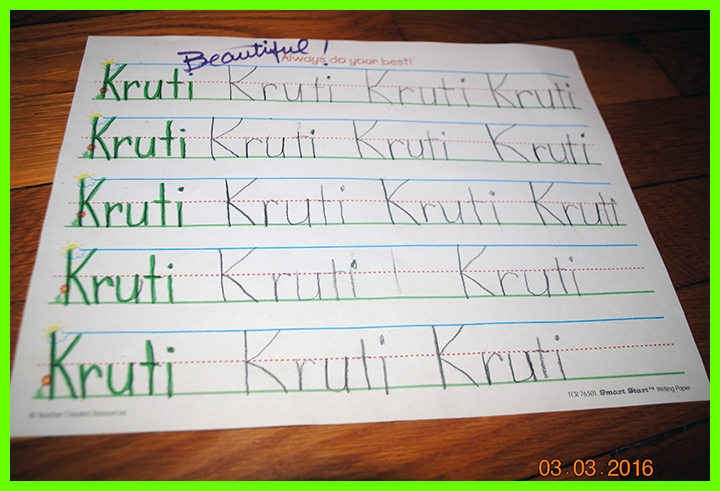 Beautiful!
Always do your best!
Kruti Kruti Kruti Kruti
Kruti Kruti Kruti Kruti
Kruti Kruti Kruti Kruti
Kruti Kruti Kruti
Kruti Kruti Kruti
TCR 76501 Smart Start™ Writing Paper
© Teacher Created Resources
03.03.2016